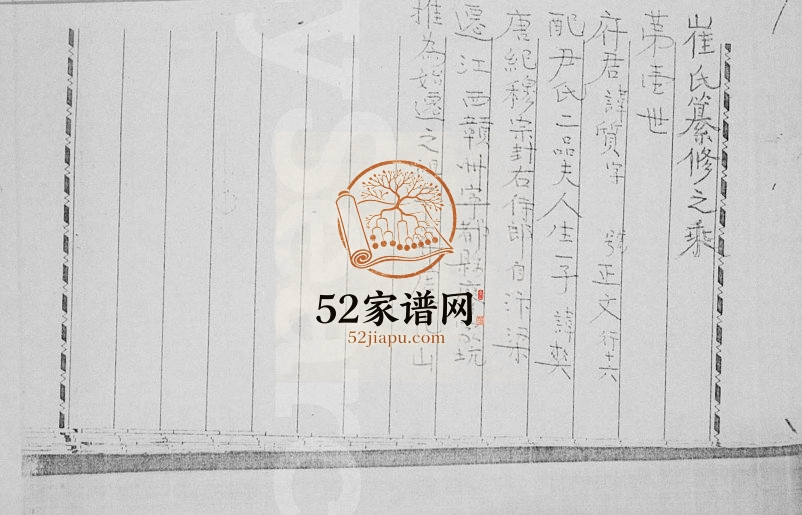 崔氏纂修之乘
第壹世
府君諱質字 號正文行十六
配尹氏二品夫人生一子諱奭
唐紀穆宗封右侍郎自汴梁
遷江西贛州寧都縣 坑
推為始遷之 山
52家谱网
52jiapu.com